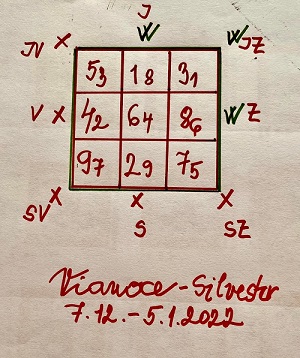 J
JV JZ
53 18 31
V 42 64 86 Z
97 29 75
SV S SZ
Vianoce - Silvester
7.12.-5.1.2022